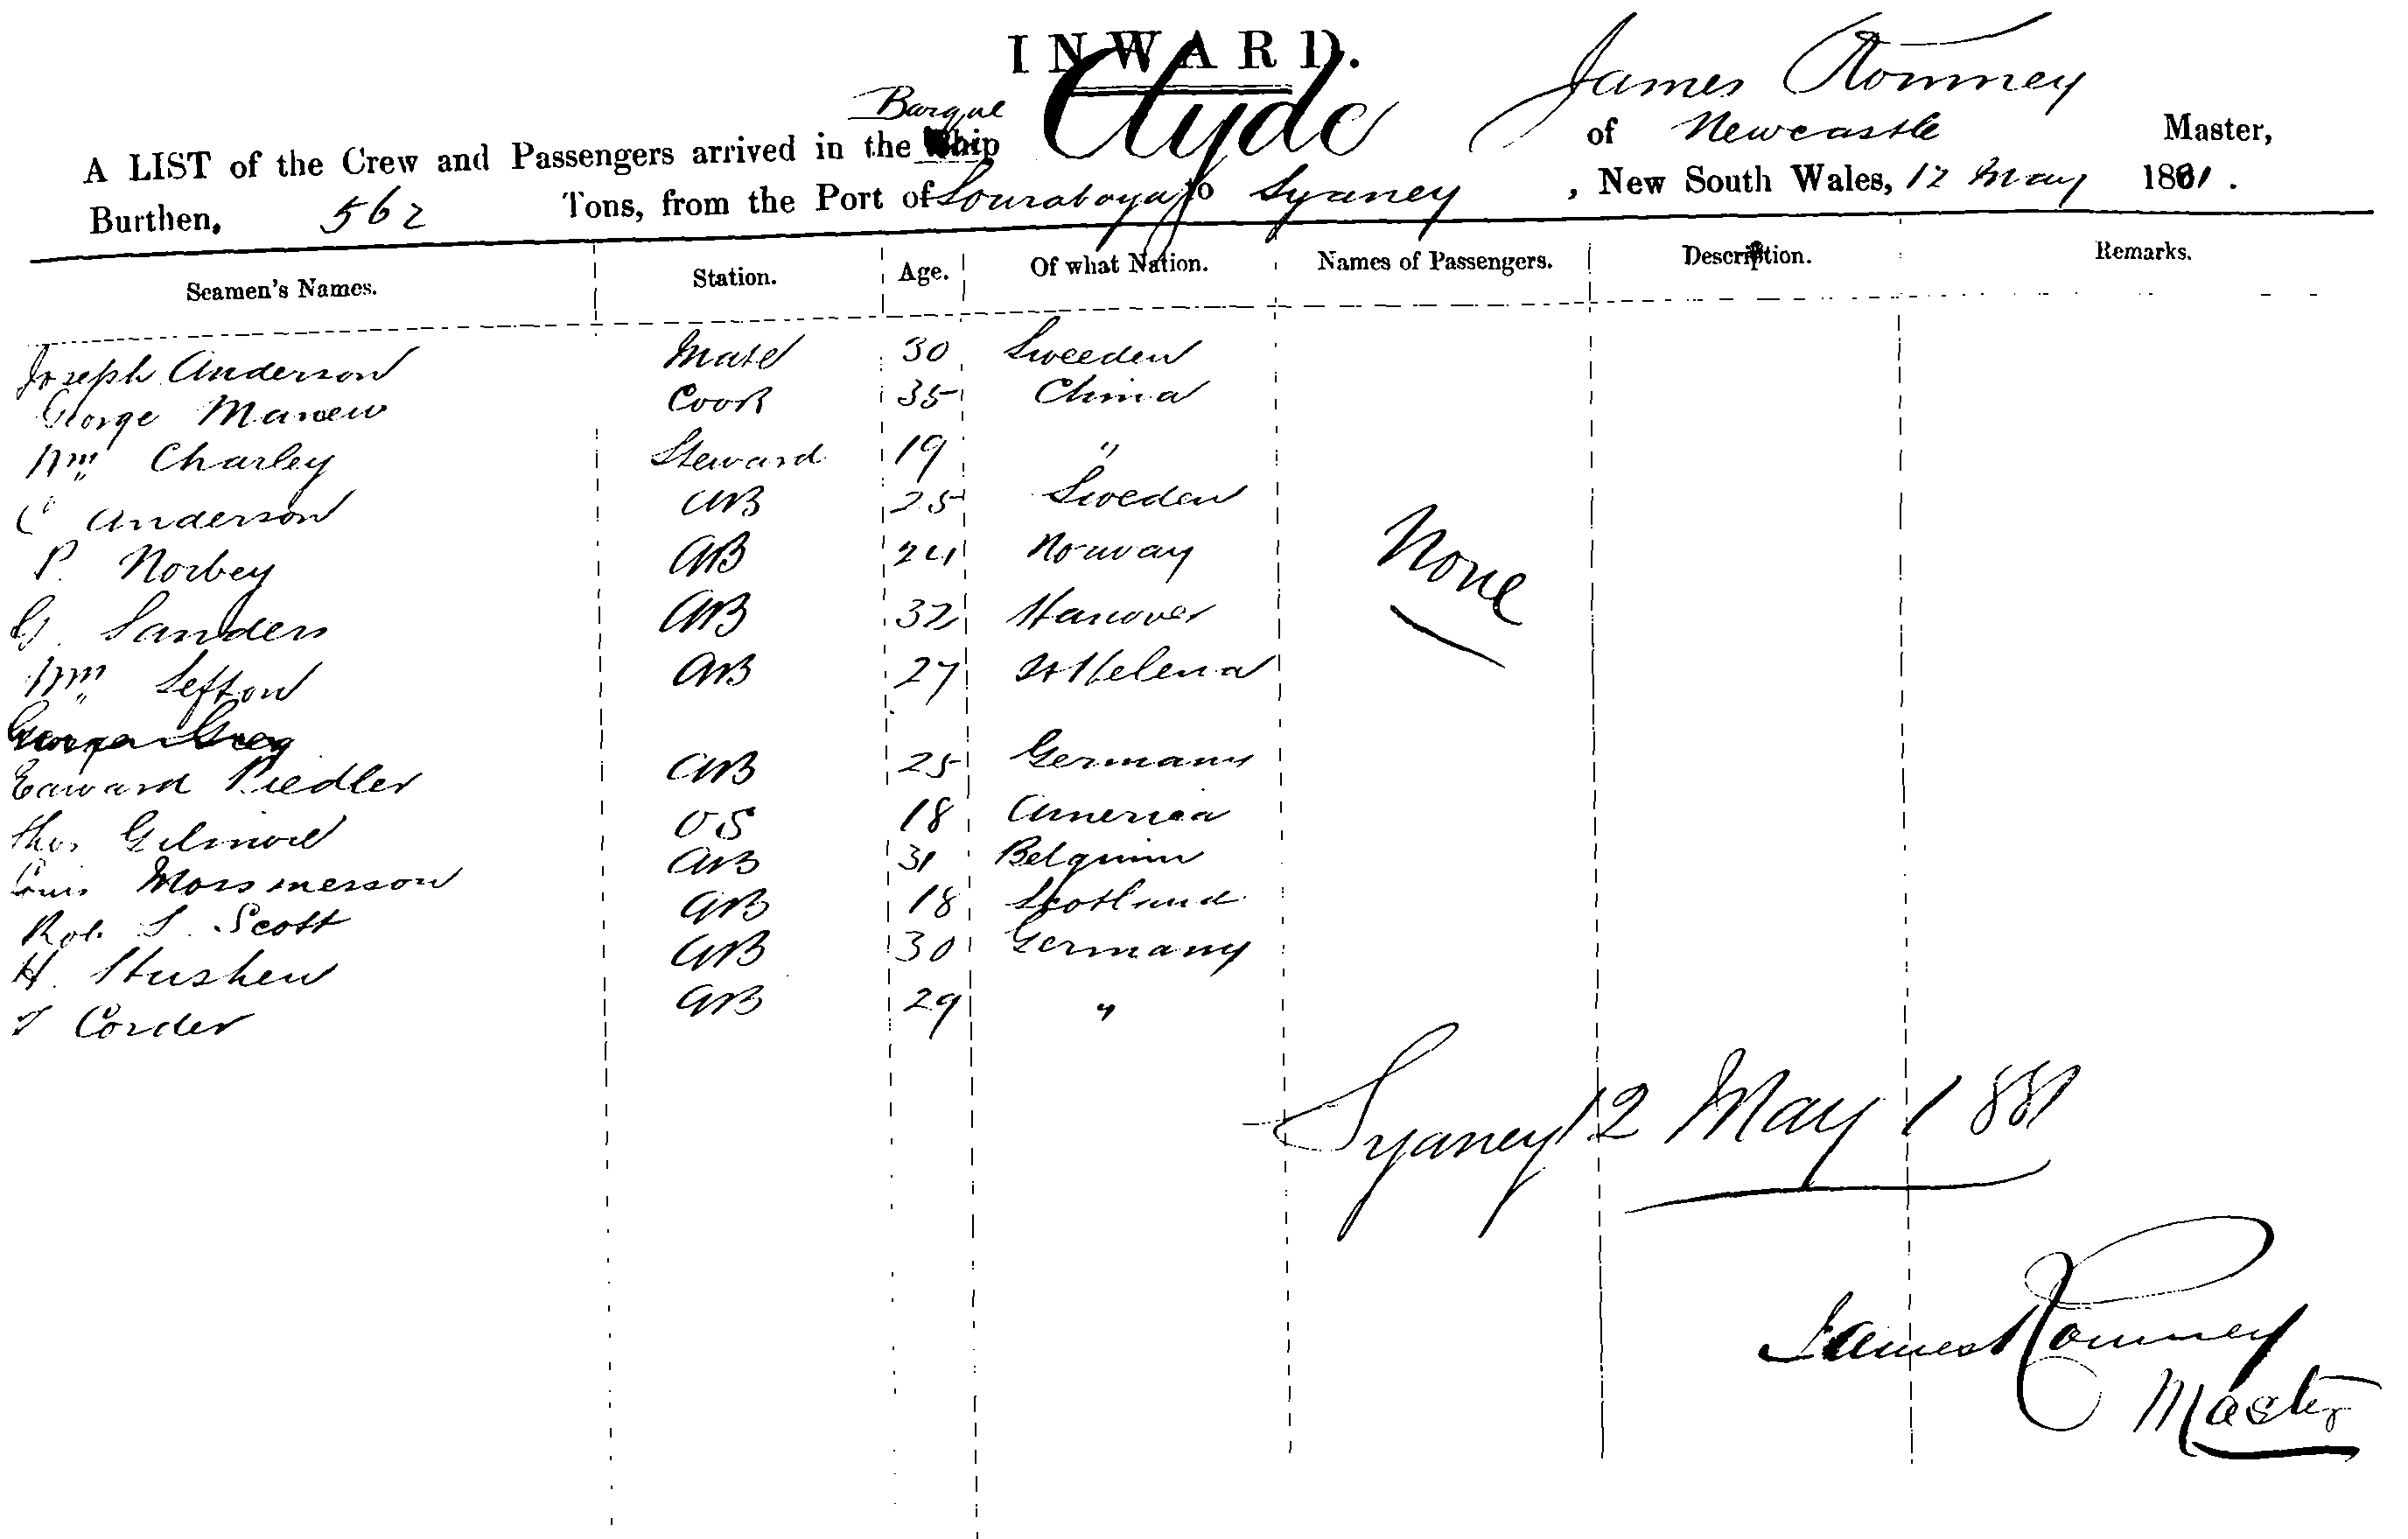 INWARD.
A LIST of the Crew and Passengers arrived in the Barque Clyde of Newcastle James Romney Master,
Burthen, 562 Tons, from the Port of Sourabaya to Sydney, New South Wales, 12 May 1881.
Seamen's Names. Station. Age. Of what Nation. Names of Passengers. Description. Remarks.
Joseph Anderson Mate 30 Sweeden
George Manew Cook 35 China
Wm Charley Steward 19 "
C Anderson AB 25 Sweden
P. Norbey AB 24 Norway
G. Sanders AB 32 Hanover
None
Wm Sefton AB 27 St Helena
Edward Piedler AB 25 Germany
Thos Gilmore OS 18 America
Louis Mossmerson AB 31 Belguim
Rob. S. Scott AB 18 Scotland
H. Stushen AB 30 Germany
T Corder AB 29 "
Sydney 12 May 1881
James Romney
Master